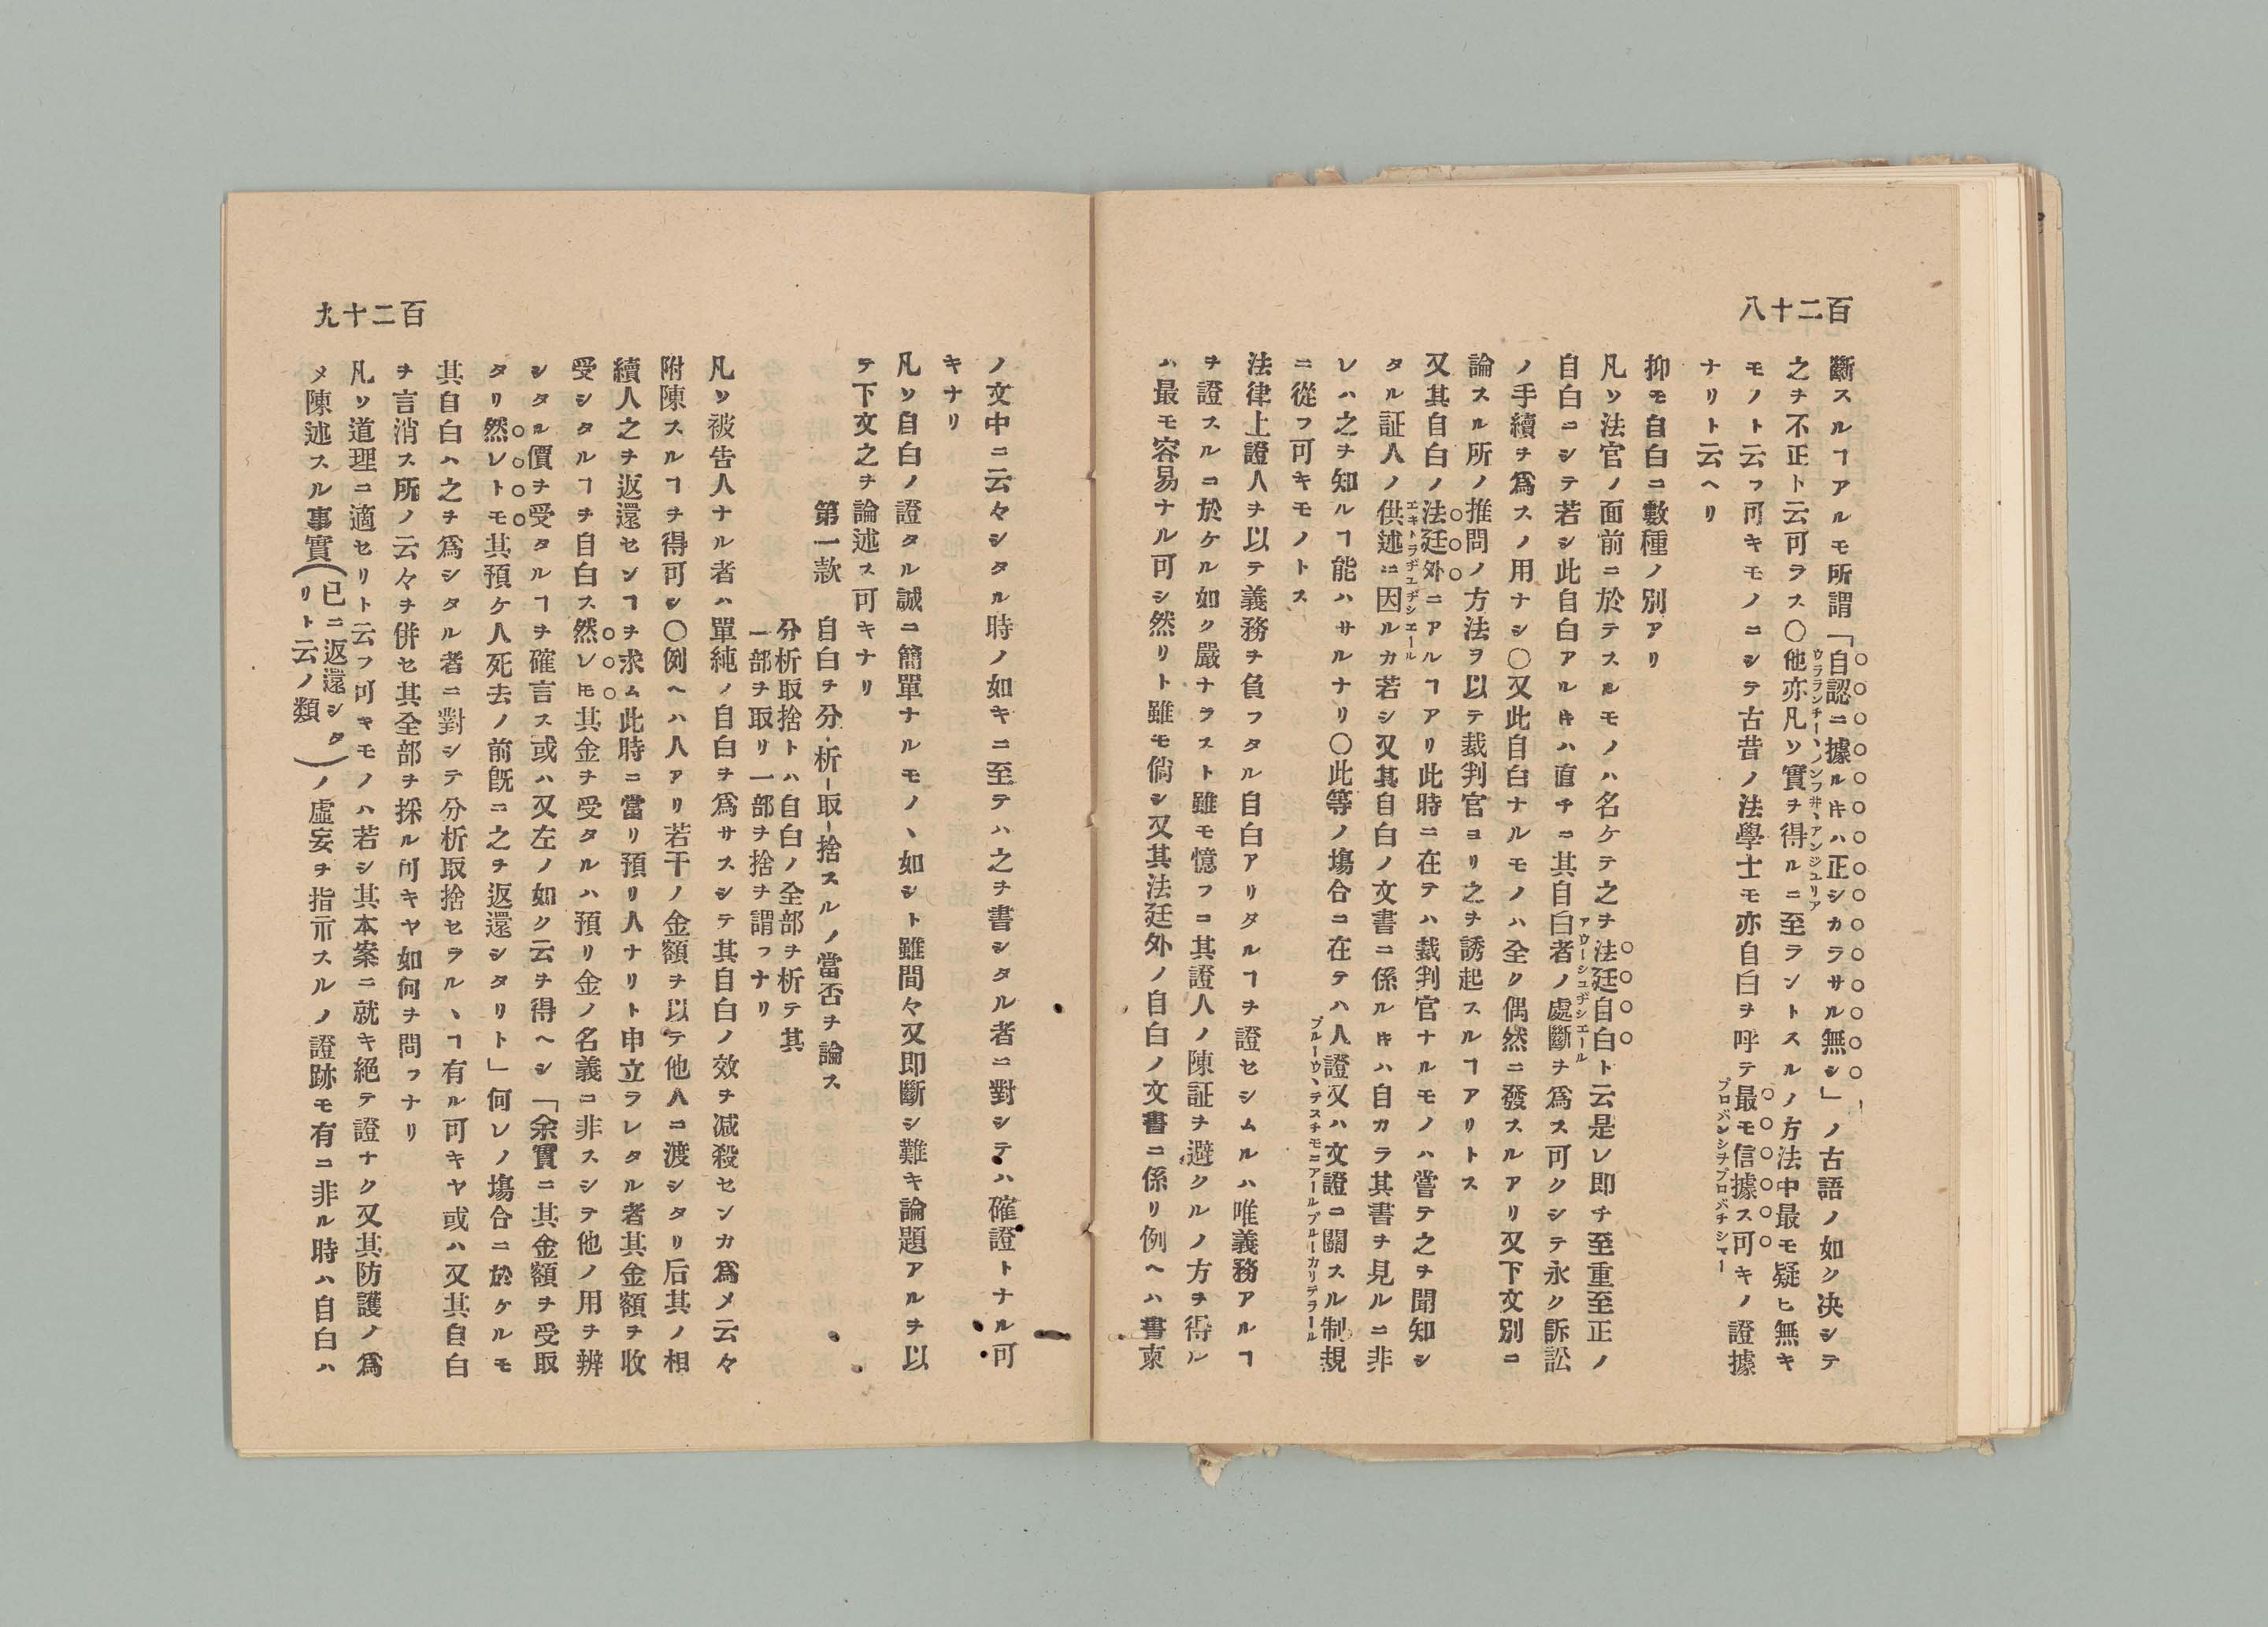 百二十八
斷スルヿアルモ所謂「自認ニ據ルキハ正シカラサル無シ」ノ古語ノ如ク决シテ
ウラランチー、ノンフ井、アンジユリア
之ヲ不正ト云可ラス〇他亦凡ソ實ヲ得ルニ至ラントスルノ方法中最モ疑ヒ無キ
モノト云フ可キモノニシテ古昔ノ法學士モ亦自白ヲ呼テ最モ信據ス可キノ證據
プロバシシチプロバチシマー
ナリト云ヘリ
抑モ自白ニ數種ノ別アリ
凡ソ法官ノ面前ニ於テスルモノハ名ケテ之ヲ法廷自白ト云是レ即チ至重至正ノ
アウーシユヂシエール
自白ニシテ若シ此自白アルキハ直チニ其自白者ノ處斷ヲ爲ス可クシテ永ク訴訟
ノ手續ヲ爲スノ用ナシ〇又此自白ナルモノハ全ク偶然ニ發スルアリ又下文別ニ
論スル所ノ推問ノ方法ヲ以テ裁判官ヨリ之ヲ誘起スルヿアリトス
又其自白ノ法廷外ニアルヿアリ此時ニ在テハ裁判官ナルモノハ嘗テ之ヲ聞知シ
エキトラヂユヂシエール
タル証人ノ供述ニ因ルカ若シ又其自白ノ文書ニ係ルキハ自カラ其書ヲ見ルニ非
レハ之ヲ知ルヿ能ハサルナリ〇此等ノ塲合ニ在テハ人證又ハ文證ニ關スル制規
プルーウ、テスチモニアールプルーカリテラール
ニ從フ可キモノトス
法律上證人ヲ以テ義務ヲ負フタル自白アリタルヿヲ證セシムルハ唯義務アルヿ
ヲ證スルニ於ケル如ク嚴ナラスト雖モ憶フニ其證人ノ陳証ヲ避クルノ方ヲ得ル
ハ最モ容易ナル可シ然リト雖モ倘シ又其法廷外ノ自白ノ文書ニ係リ例ヘハ書柬
百二十九
ノ文中ニ云々シタル時ノ如キニ至テハ之ヲ書シタル者ニ對シテハ確證トナル可
キナリ
凡ソ自白ノ證タル誠ニ簡單ナルモノヽ如シト雖間々又即斷シ難キ論題アルヲ以
テ下文之ヲ論述ス可キナリ
第一款　自白ヲ分析取捨スルノ當否ヲ論ス
分析取捨トハ自白ノ全部ヲ析テ其
一部ヲ取リ一部ヲ捨ヲ謂フナリ
凡ソ被告人ナル者ハ單純ノ自白ヲ爲サスシテ其自白ノ效ヲ减殺センカ爲メ云々
附陳スルヿヲ得可シ〇例ヘハ人アリ若干ノ金額ヲ以テ他人ニ渡シタリ后其ノ相
續人之ヲ返還センヿヲ求ム此時ニ當リ預リ人ナリト申立ラレタル者其金額ヲ收
受シタルヿヲ自白ス然レ𪜈其金ヲ受タルハ預リ金ノ名義ニ非スシテ他ノ用ヲ辨
シタル價ヲ受タルヿヲ確言ス或ハ又左ノ如ク云ヲ得ヘシ「余實ニ其金額ヲ受取
タリ然レトモ其預ケ人死去ノ前既ニ之ヲ返還シタリト」何レノ塲合ニ於ケルモ
其自白ハ之ヲ爲シタル者ニ對シテ分析取捨セラルヽヿ有ル可キヤ或ハ又其自白
ヲ言消ス所ノ云々ヲ併セ其全部ヲ採ル可キヤ如何ヲ問フナリ
凡ソ道理ニ適セリト云フ可キモノハ若シ其本案ニ就キ絕テ證ナク又其防護ノ爲
メ陳述スル事實(已ニ返還シタリト云ノ類)ノ虛妄ヲ指示スルノ證跡モ有ニ非ル時ハ自白ハ